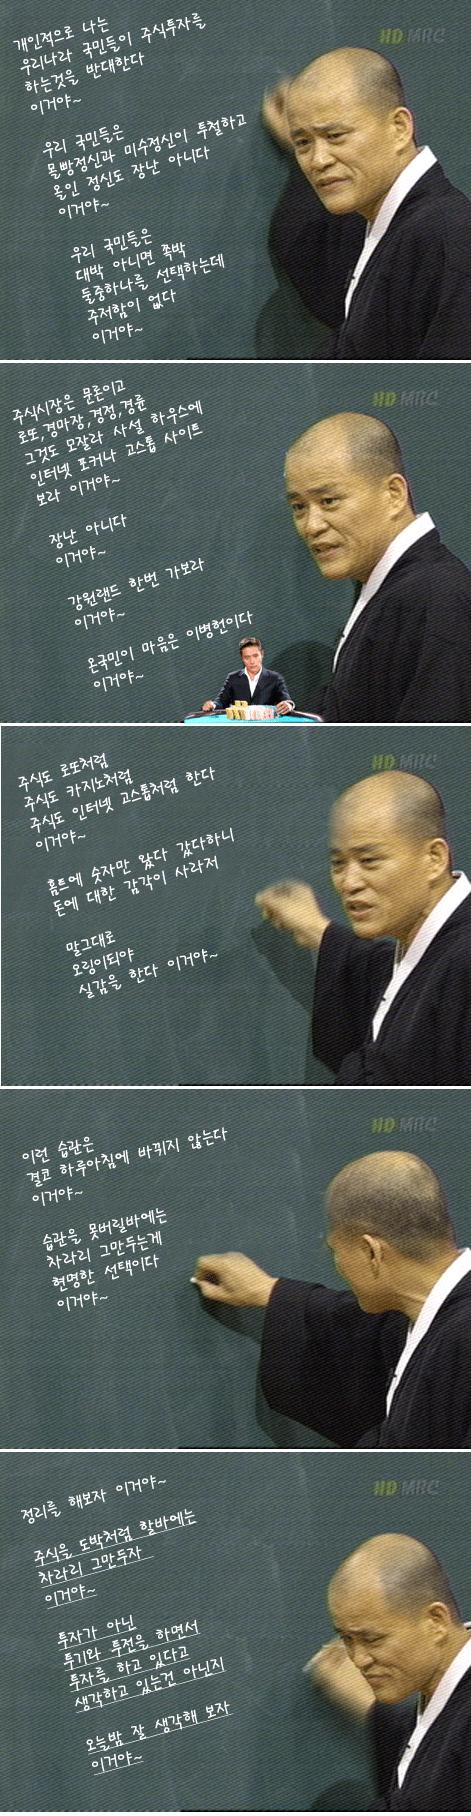 HD MBC
개인적으로 나는
우리나라 국민들이 주식투자를
하는것을 반대한다
이거야~
우리 국민들은
몰빵정신과 미수정신이 투철하고
올인 정신도 장난 아니다
이거야~
우리 국민들은
대박 아니면 쪽박
둘중하나를 선택하는데
주저함이 없다
이거야~
HD MBC
주식시장은 문론이고
로또,경마장,경정,경륜
그것도 모잘라 사설 하우스에
인터넷 포커나 고스톱 사이트
보라 이거야~
장난 아니다
이거야~
강원랜드 한번 가보라
이거야~
온국민이 마음은 이병헌이다
이거야~
HD MBC
주식도 로또처럼
주식도 카지노처럼
주식도 인터넷 고스톱처럼 한다
이거야~
홈트에 숫자만 왔다 갔다하니
돈에 대한 감각이 사라져
말그대로
오링이되야
실감을 한다 이거야~
HD MBC
이런 습관은
결코 하루아침에 바뀌지 않는다
이거야~
습관을 못버릴바에는
차라리 그만두는게
현명한 선택이다
이거야~
HD MBC
정리를 해보자 이거야~
주식을 도박처럼 할바에는
차라리 그만두자
이거야~
투자가 아닌
투기와 투전을 하면서
투자를 하고 있다고
생각하고 있는건 아닌지
오늘밤 잘 생각해 보자
이거야~